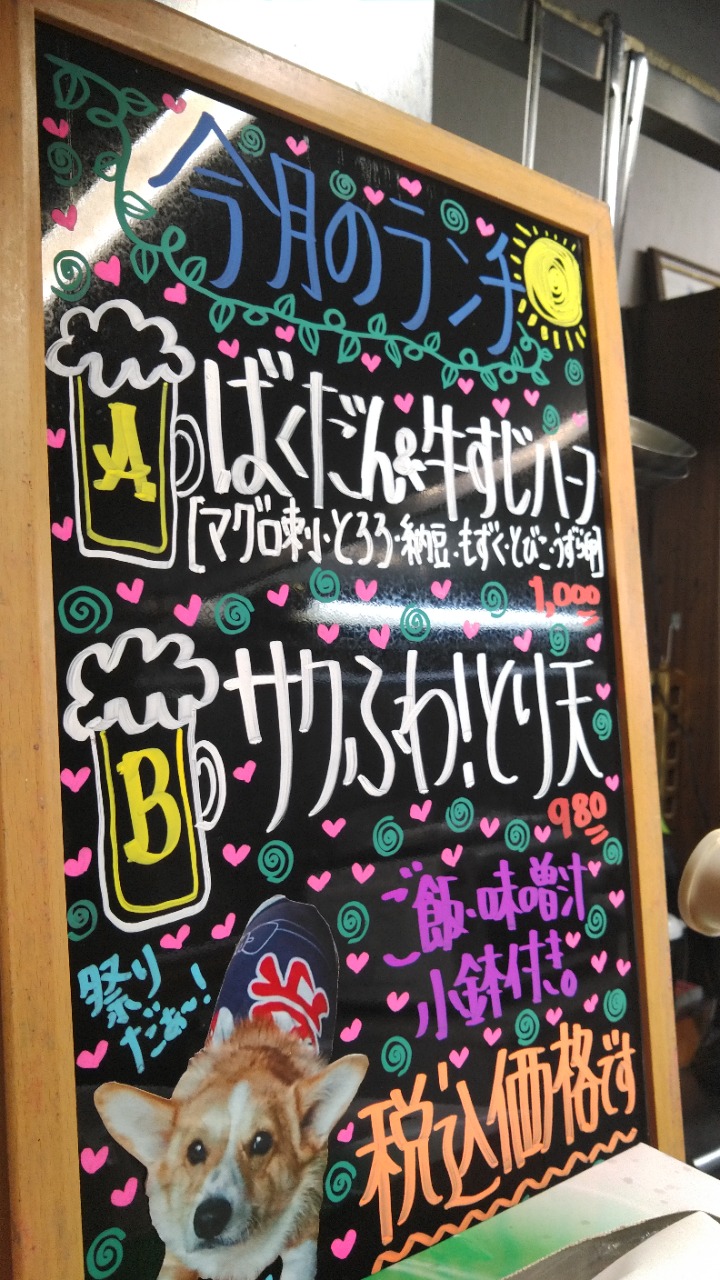 今月のランチ
A
ばくだん&牛すじハーフ
[マグロ刺・とろろ・納豆・もずく・とびこ・うずら卵]
1,000
B
サクふわ!とり天
980
ご飯・味噌汁
小鉢付き。
祭り
だぁ~!
税込価格です